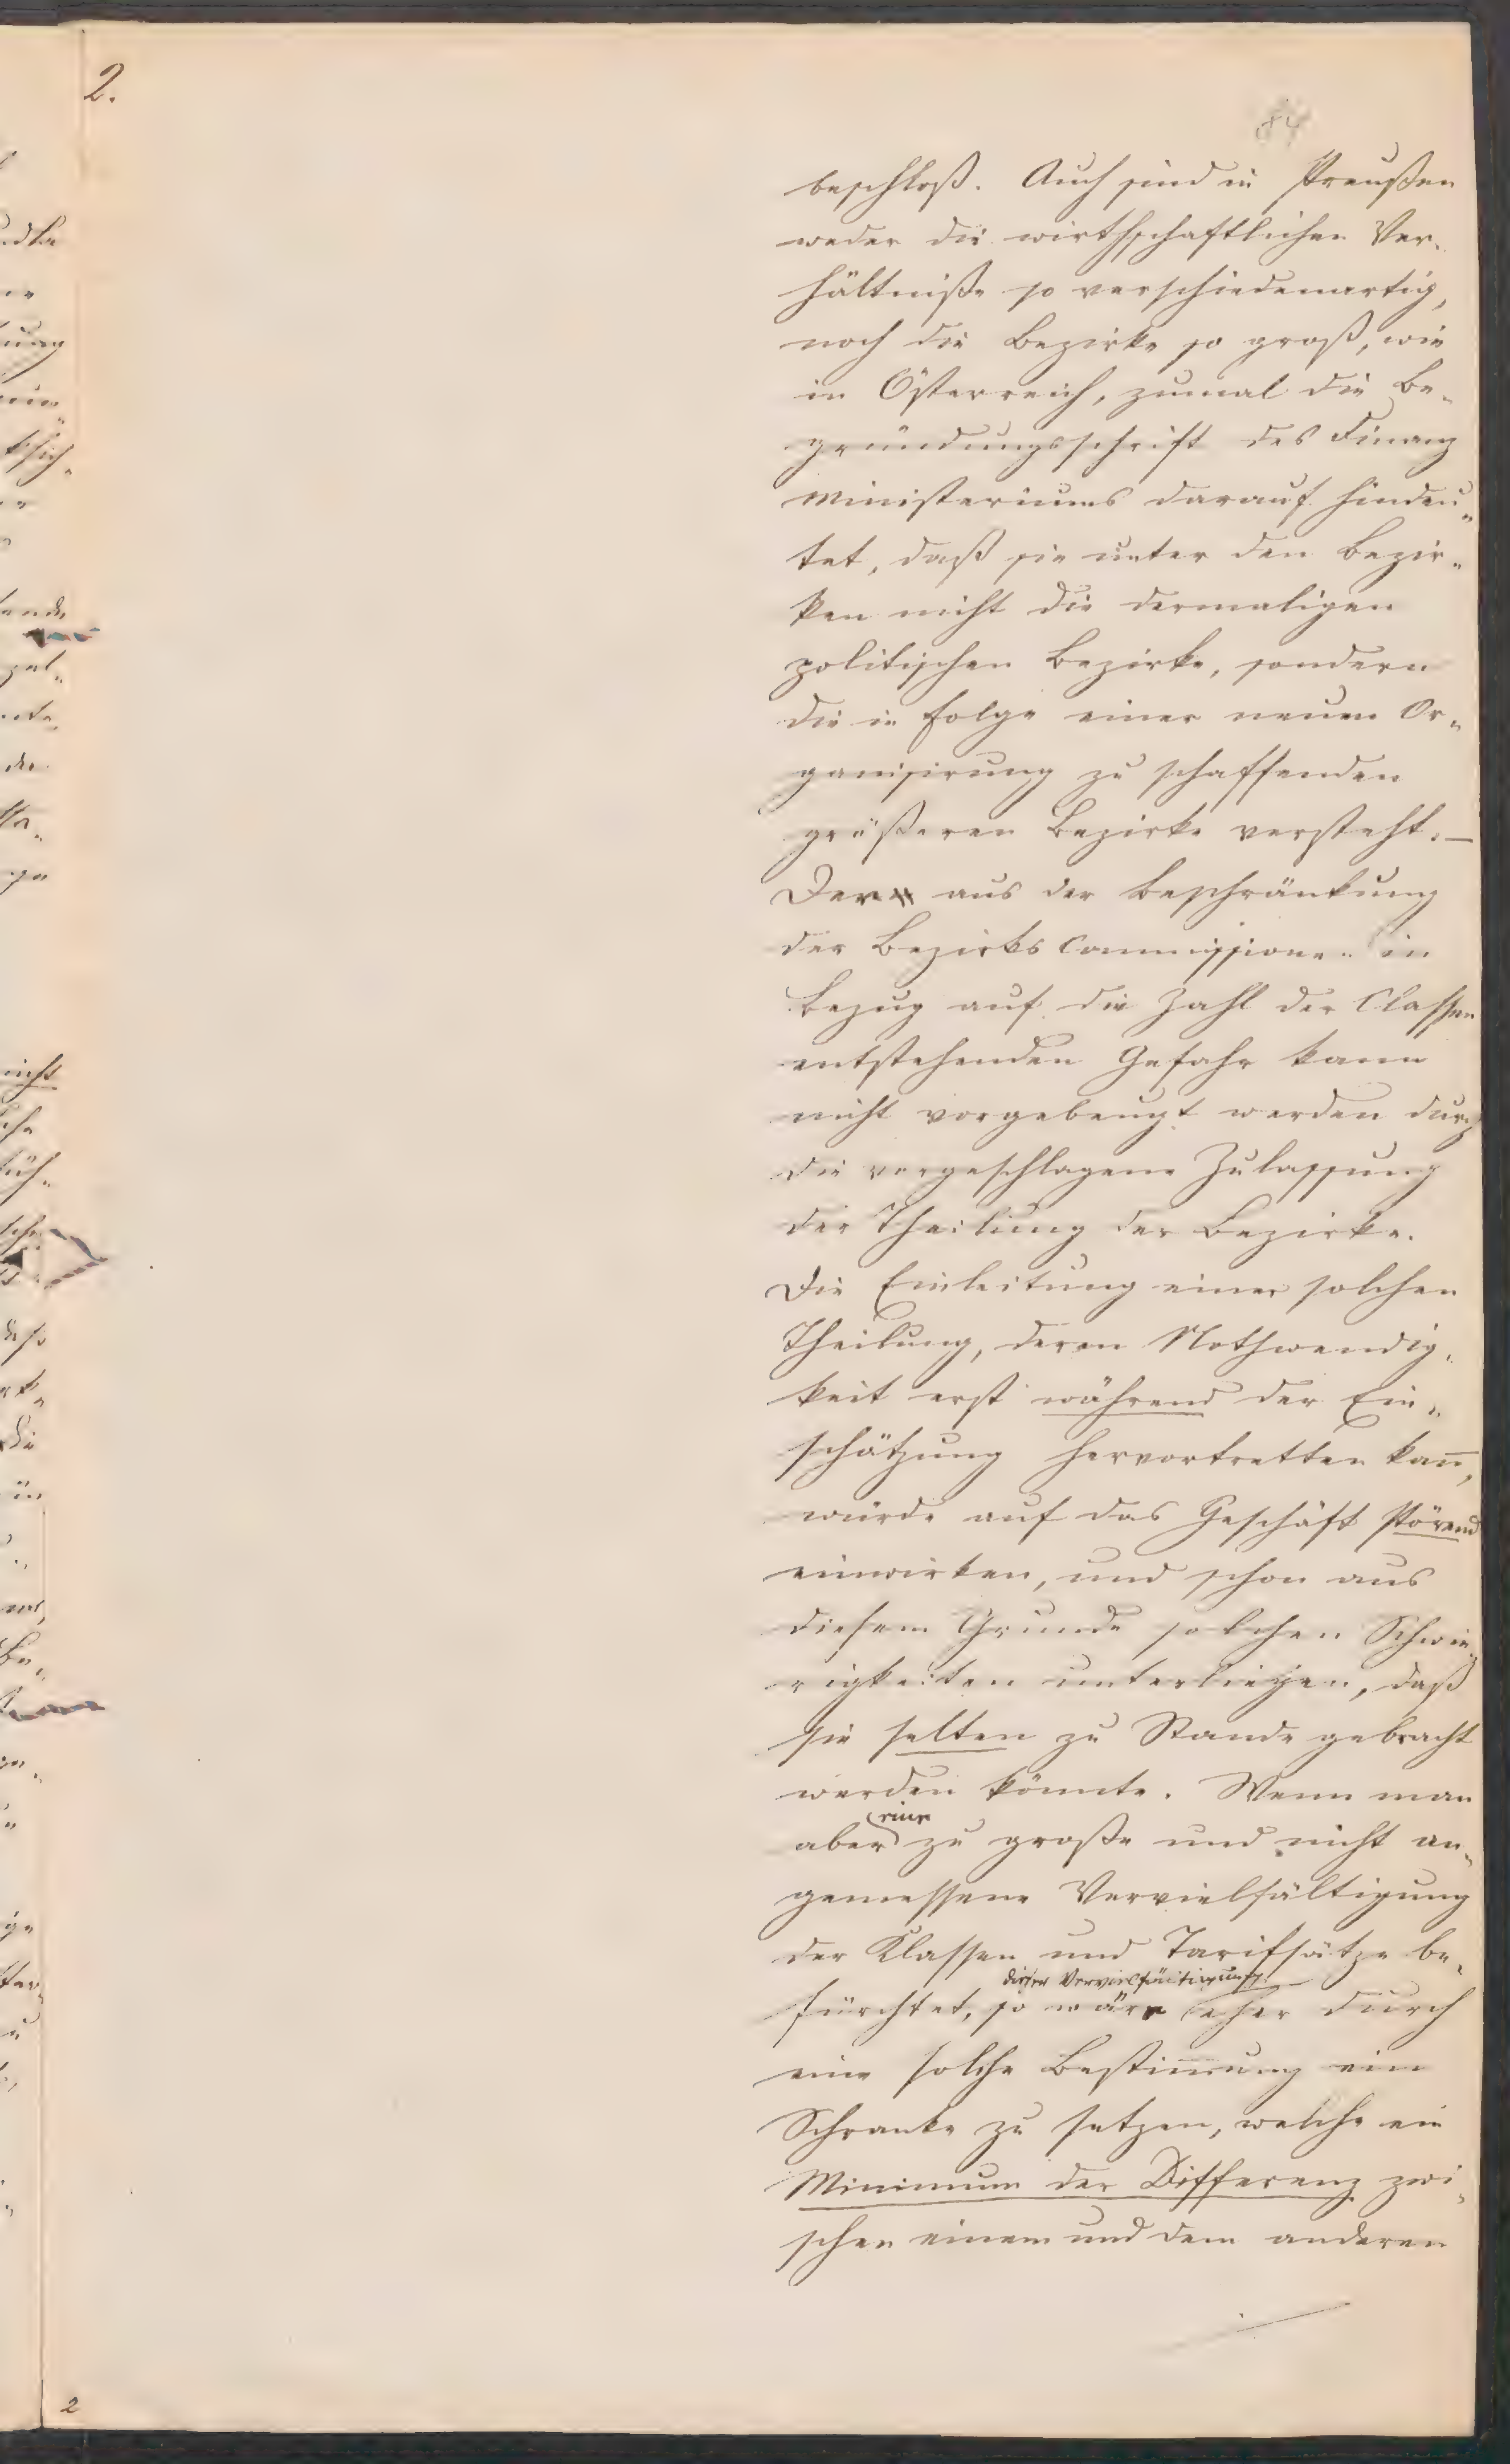 2.
84
beschloß. Auch sind in Preußen
weder die wirthschaftlichen Ver-
hältniße so verschiedenartig,
noch die Bezirke so groß, wie
in Österreich, zumal die Be-
gründungsschrift des Finanz
ministeriums darauf hindeu-
tet, daß sie unter den Bezir-
ken nicht die dermaligen
politischen Bezirke, sondern
die in Folge einer neuen Or-
ganisirung zu schaffenden
größeren Bezirke versteht.—
Der aus der Beschränkung
der Bezirks Commissionen in
Bezug auf die Zahl der Classen
entstehenden Gefahr kann
nicht vorgebeugt werden durch
die vorgeschlagene Zulassung
der Theilung der Bezirke.
Die Einleitung einer solchen
Theilung, deren Nothwendig-
keit erst während der Ein-
schätzung hervortretten kan̄,
würde auf das Geschäft störend
einwirken, und schon aus
diesem Grunde solchen Schwie-
rigkeiten unterliegen, daß
sie selten zu Stande gebracht
werden könnte. Wenn man
eine
aber zu große und nicht an-
gemessene Vervielfältigung
der Klassen und Tarifsätze be-
dieser Vervielfältigung
fürchtet, so wäre eher durch
eine solche Bestim̄ung ein
Schranke zu setzen, welche ein
Minimum der Differenz zwi-
schen einem und dem anderen
2